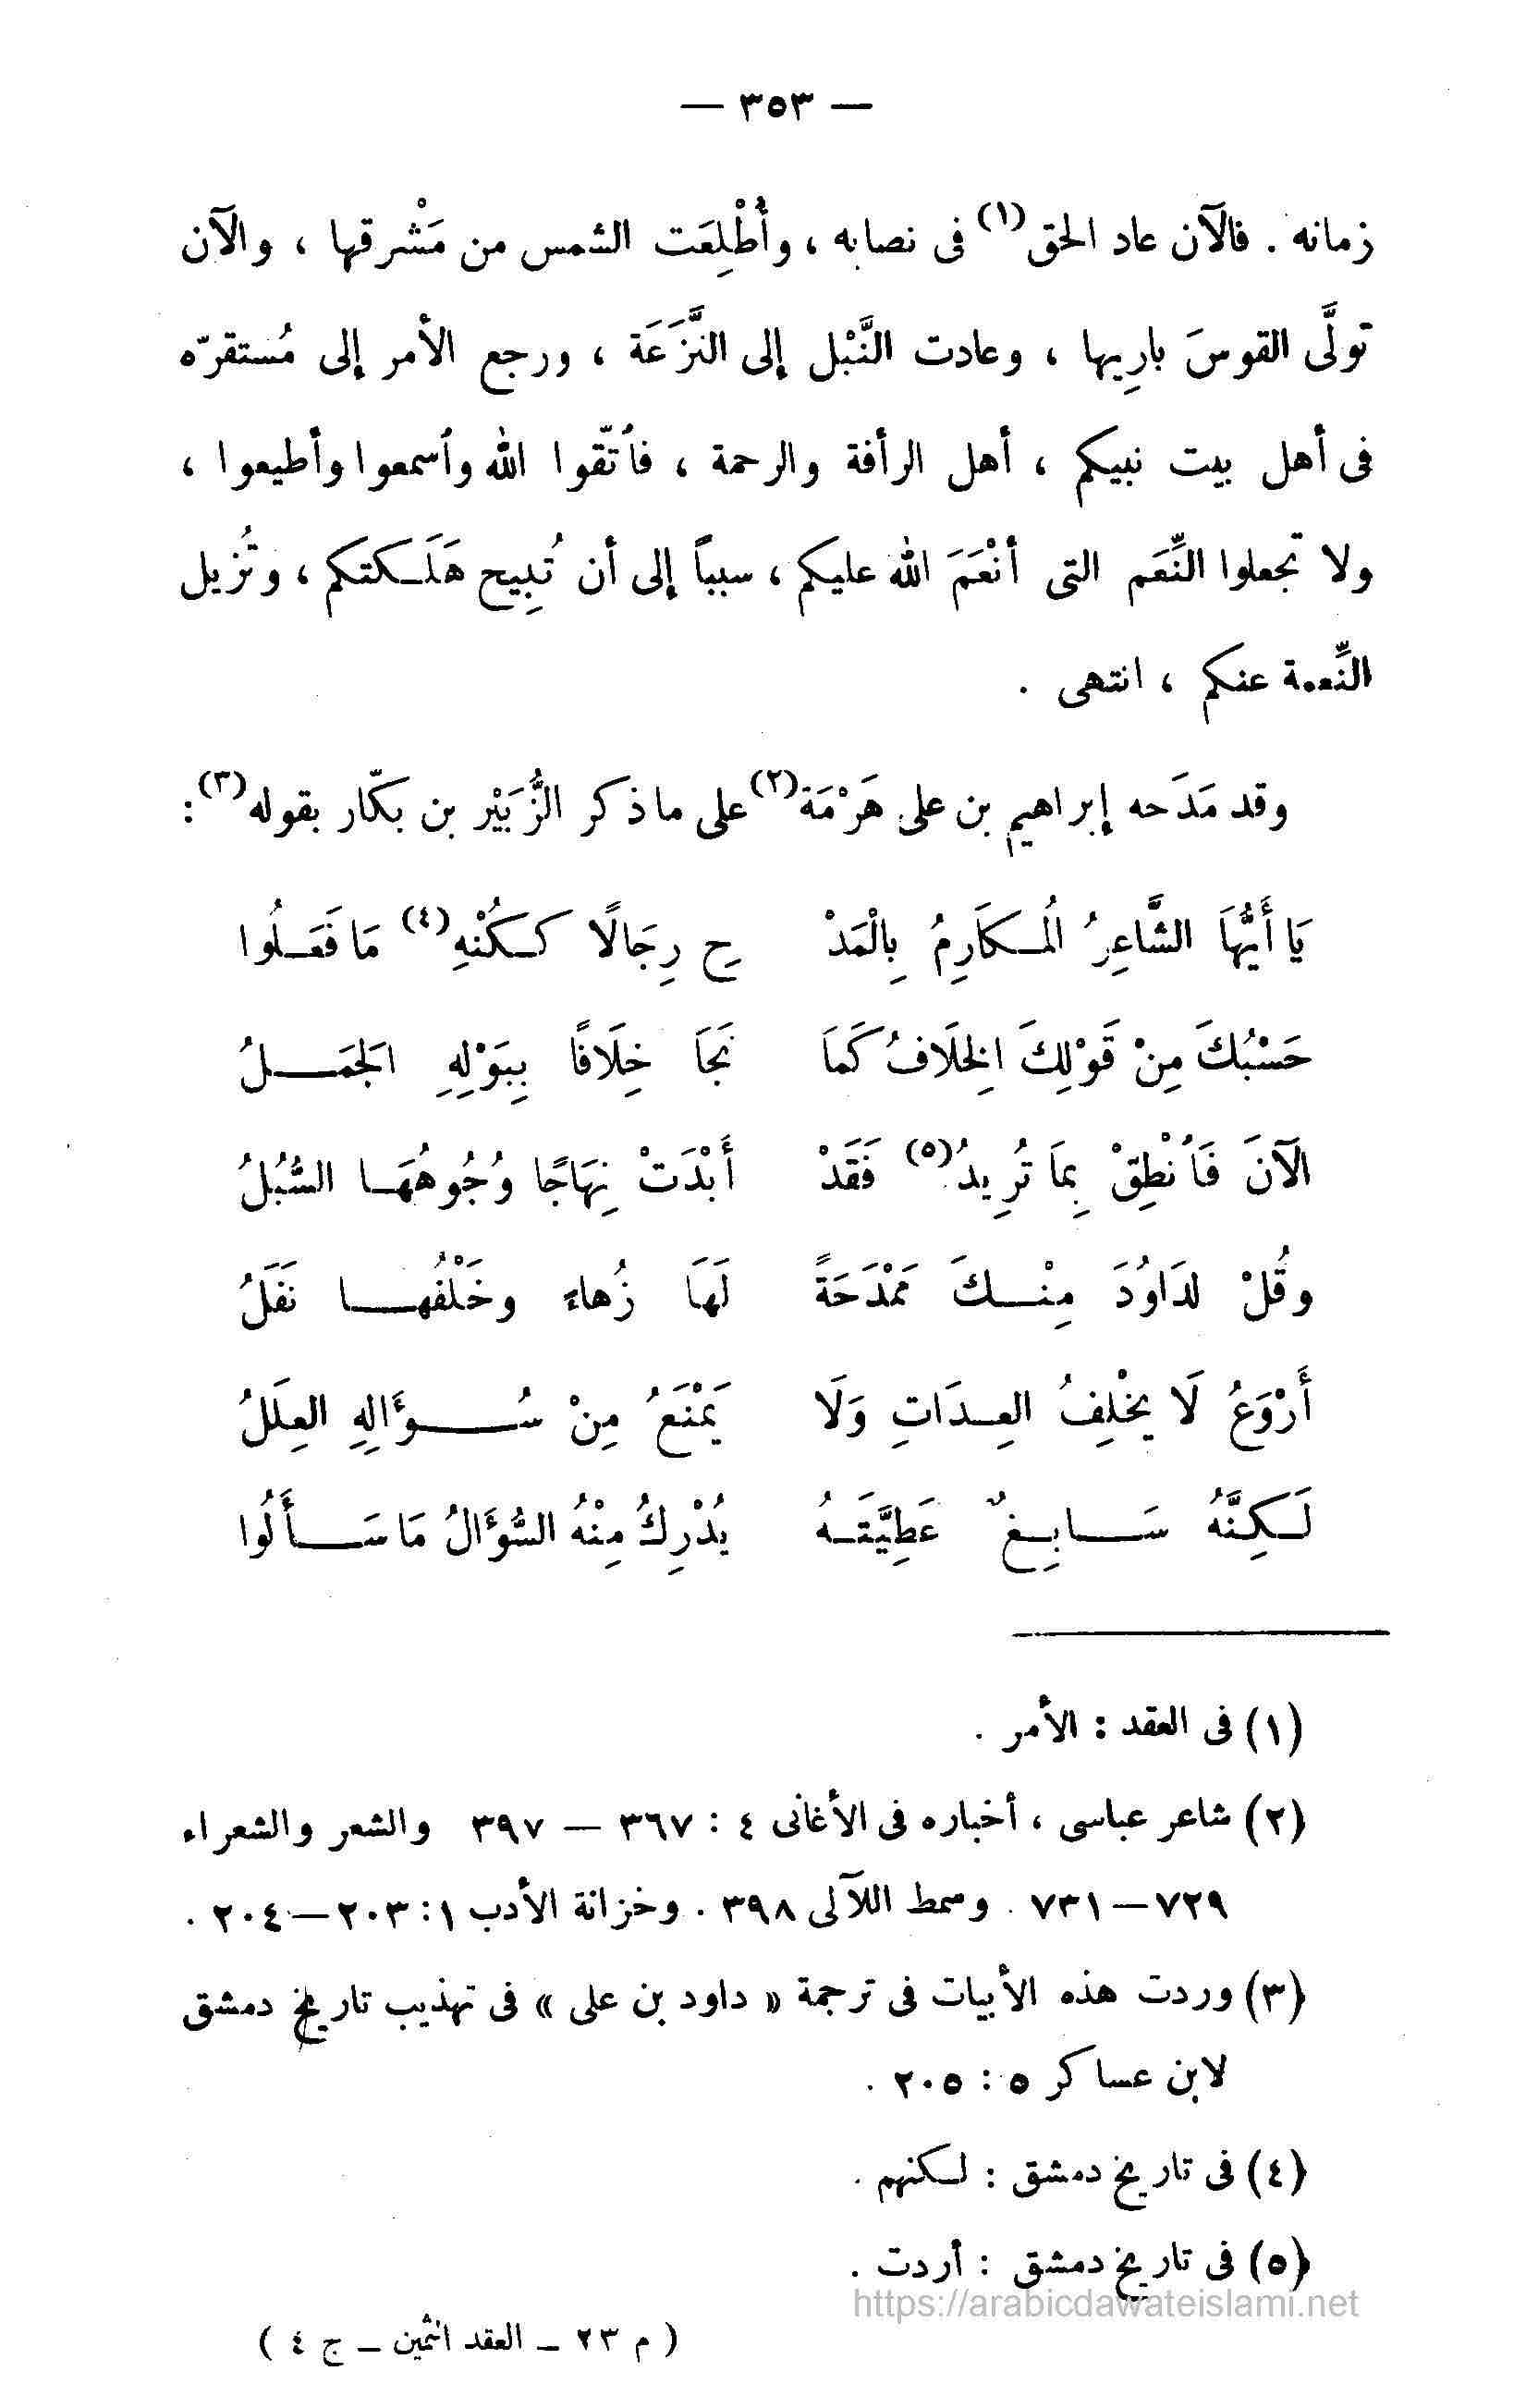 — ٣٥٣ —
زمانه . فالآن عاد الحق(١) فى نصابه ، وأُطْلِعَت الشمس من مَشْرقها ، والآن
تولَّى القوسَ بارِيها ، وعادت النَّبْل إلى النَّزَعَة ، ورجع الأمر إلى مُستقرّه
فى أهل بيت نبيكم ، أهل الرأفة والرحمة ، فاُتّقوا الله واُسمعوا وأطيعوا ،
ولا تجعلوا النِّعَم التى أنْعَمَ الله عليكم ، سبباً إلى أن تُبِيح هَلَـكتكم ، وتُزيل
النِّعمة عنكم ، انتهى .
وقد مَدَحه إبراهيم بن على هَرْمَة(٢) على ما ذكر الزُّبَيْر بن بكّار بقوله(٣) :
يَا أَيُّهَا الشَّاعِرُ الُمـكَارِمُ بِالْمَدْ ح رِجَالًا كـكُنْهِ(٤) مَا فَعَـلُوا
حَسْبُكَ مِنْ قَوْلِكَ الِخلَافُ كَمَا نَجَا خِلَافًا بِبَوْلِهِ الَجمَـــلُ
الآنَ فَاُنْطِقْ بِمَا تُرِيدُ(٥) فَقَدْ أَبْدَتْ نِهَاجًا وُجُوهُهَـا السُّبُلُ
وقُلْ لدَاوُدَ مِنْــكَ مَمْدَحَةً لَهَا زُهاءٌ وخَلْفُهـــا نَفَلُ
أَرْوَعُ لَا يخْلِفُ العِـدَاتِ وَلَا يَمْنَعُ مِنْ سُــؤَالِهِ العِلَلُ
لَـكِنَّهُ سَــابِـغٌ عَطِيَّتَـهُ يُدْرِكُ مِنْهُ السُّؤَالُ مَا سَــأَلُوا
(١) فى العقد : الأمر .
(٢) شاعر عباسى ، أخباره فى الأغانى ٤ : ٣٦٧ — ٣٩٧ والشعر والشعراء
٧٢٩—٧٣١ . وسمط اللآلى ٣٩٨ . وخزانة الأدب ١ : ٢٠٣—٢٠٤ .
(٣) وردت هذه الأبيات فى ترجمة « داود بن على » فى تهذيب تاريخ دمشق
لابن عساكر ٥ : ٢٠٥ .
(٤) فى تاريخ دمشق : لـكنهم .
(٥) فى تاريخ دمشق : أردت .
https://arabicdawateislami.net
( م ٢٣ ـ العقد الثمين ـ ج ٤ )